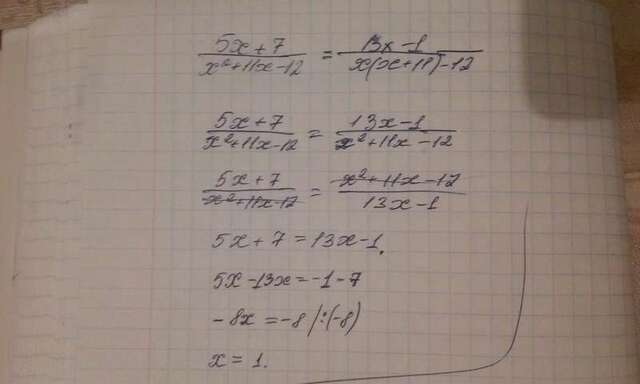 (5x+7)/(x²+11x-12) = (13x-1)/(x(x+11)-12)
(5x+7)/(x²+11x-12) = (13x-1)/(x²+11x-12)
(5x+7)/(x²+11x-12) = (x²+11x-12)/(13x-1)
5x+7=13x-1.
5x-13x=-1-7
-8x=-8/:(-8)
x=1.